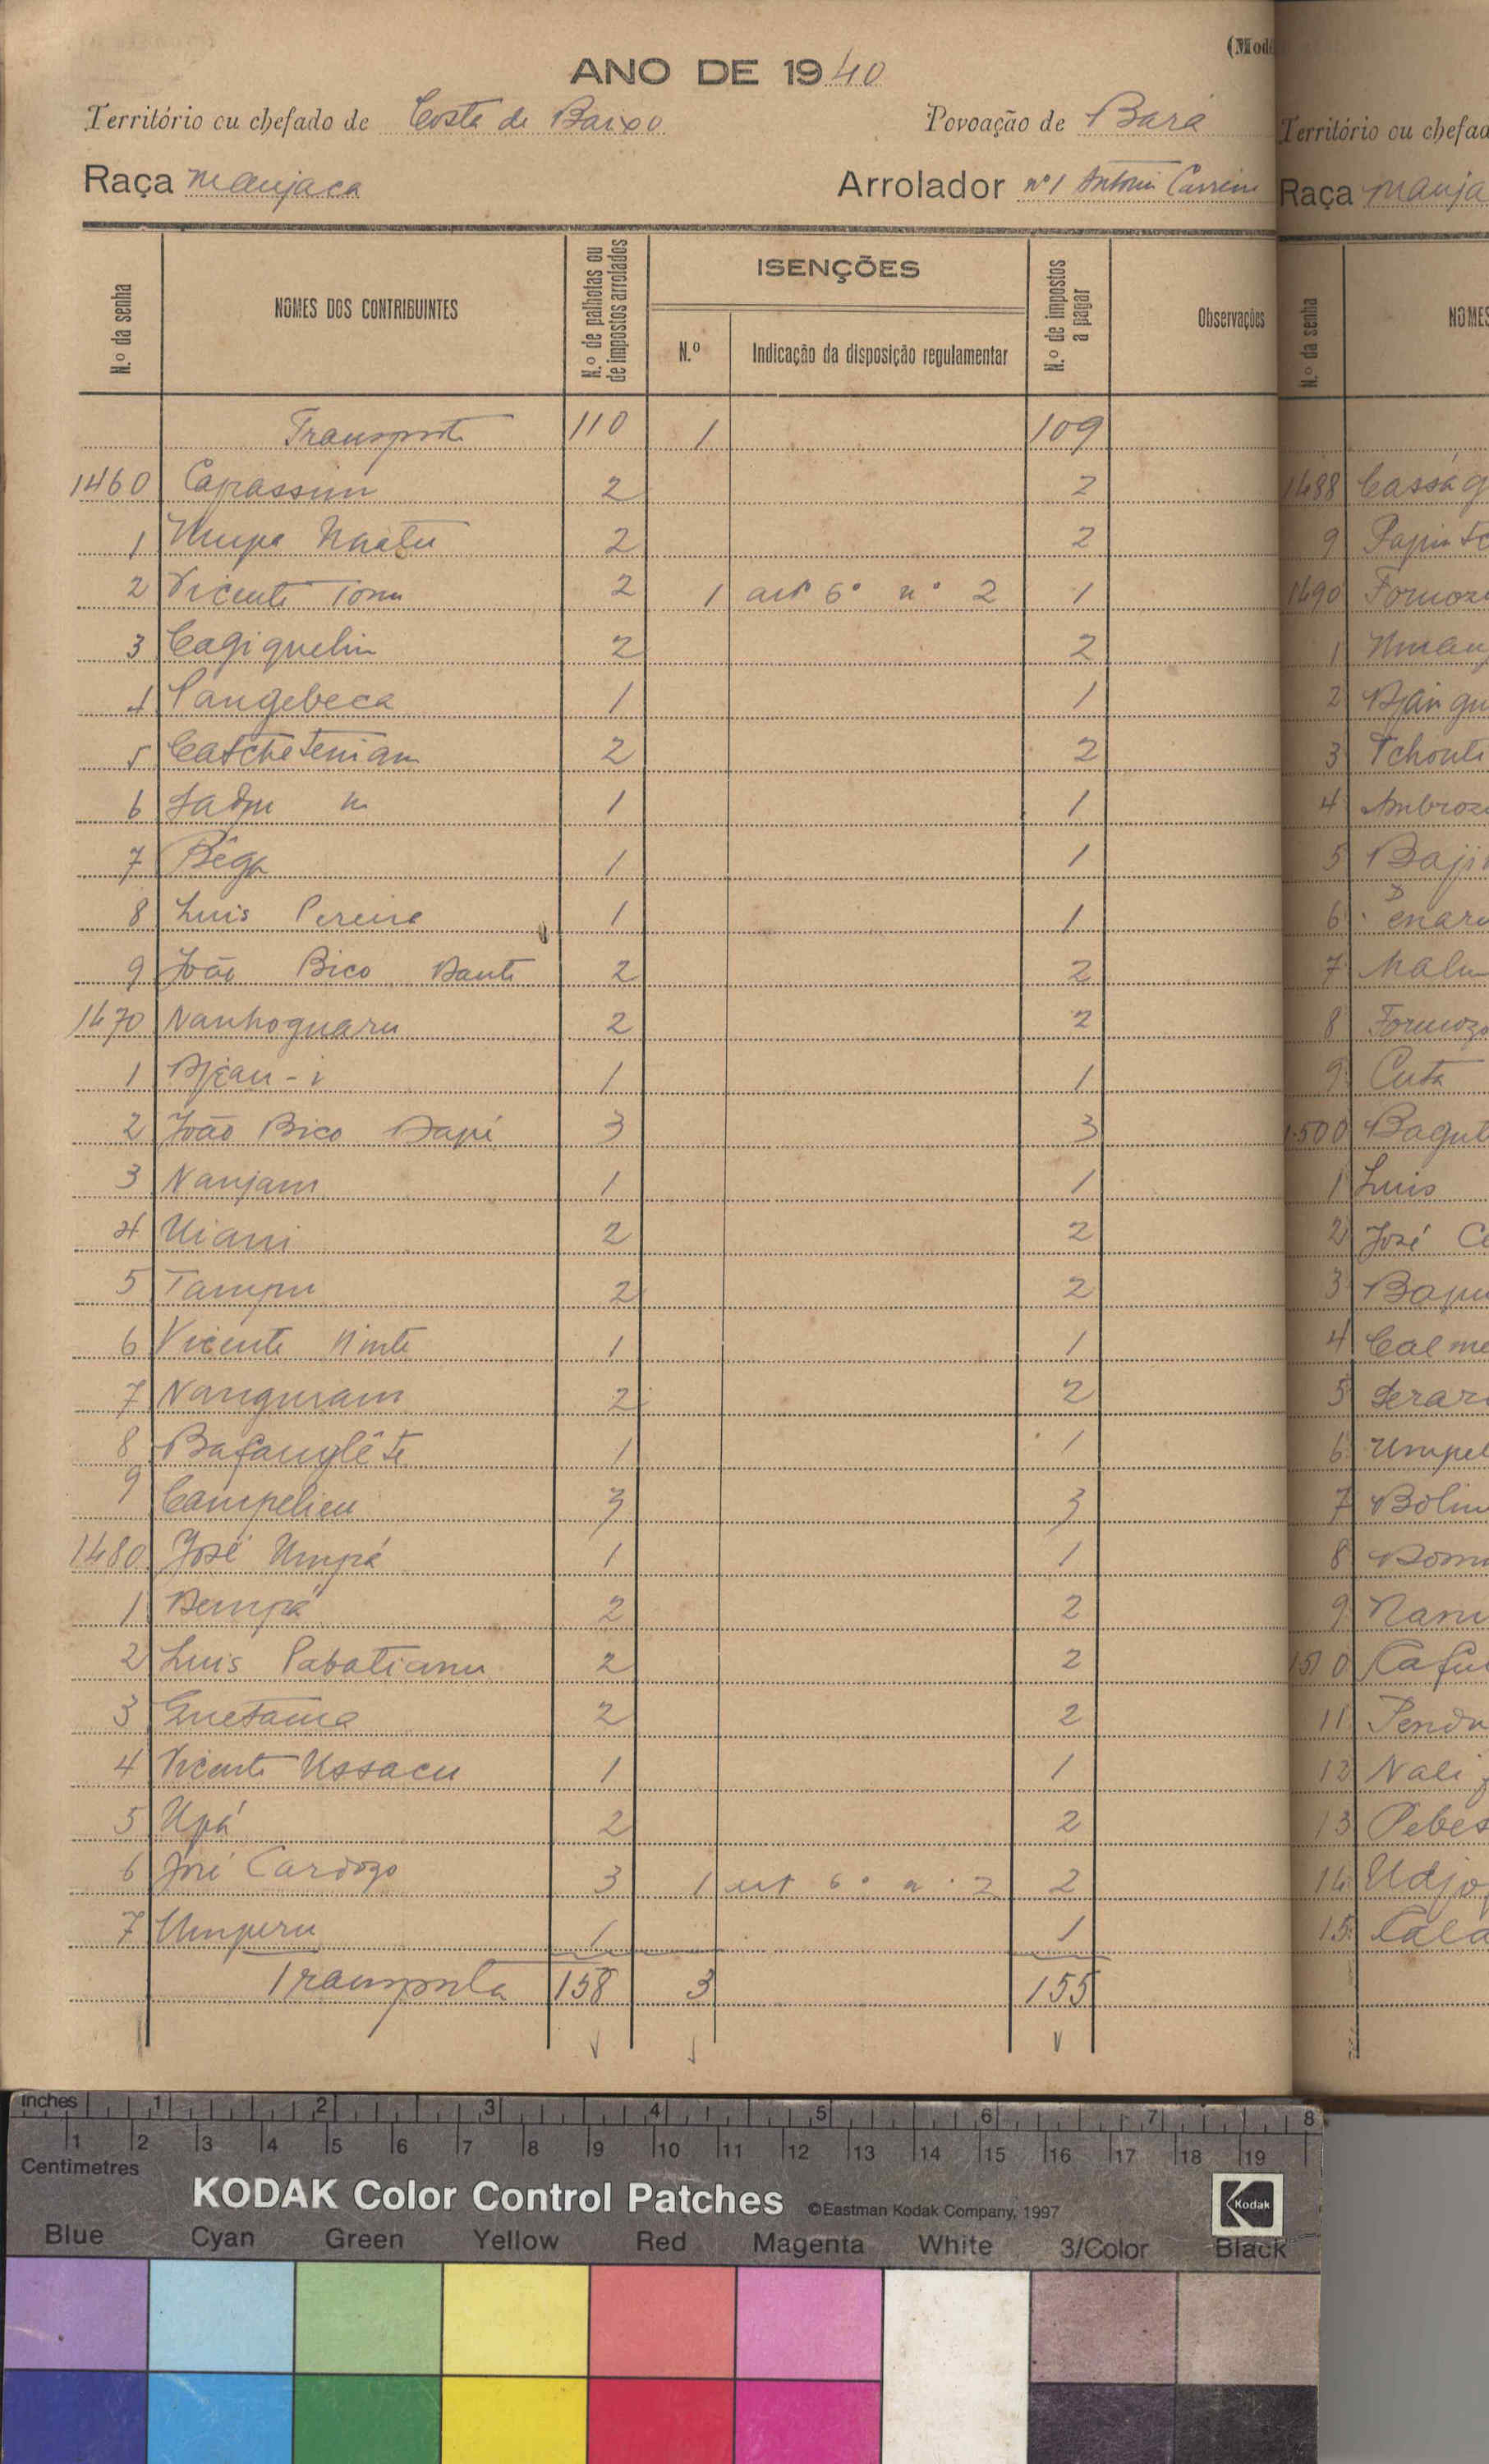 (Mod
ANO DE 1940
Território ou chefado de Costa de Baixo Povoação de Bara
Raça Manjaca Arrolador nº1 António Carreira
N.º da senha NOMES DOS CONTRIBUINTES N.º de palhotas ou de impostos arrolados ISENÇÕES N.º Indicação da disposição regulamentar N.º de impostos a pagar Observações
Transporte 110 1 109
1460 Capassim 2 2
1 2 2
2 Vicente 2 1 artº 6º nº 2 1
3 Cagiquelin 2 2
4 Pangebeca 1 1
5 Catcheteniam 2 2
6 1 1
7 Bêga 1 1
8 Luis Pereira 1 1
9 João Bico 2 2
1470 Nanhoguaru 2 2
1 Djean-i 1 1
2 João Bico Dapi 3 3
3 Nanjam 1 1
4 Uiani 2 2
5 Tampu 2 2
6 Vicente 1 1
7 2 2
8 1 1
9 Campelieu 3 3
1480 José Umpá 1 1
1 Dempá 2 2
2 Luis Pabatianu 2 2
3 2 2
4 Vicente Ussacu 1 1
5 Upá 2 2
6 José Cardozo 3 1 art 6º nº 2 2
7 Umperu 1 1
Transporta 158 3 155
Território ou chefad
Raça Manja
N.º da senha NOMES
1488 Casság
9
1490 Formoz
1
2
3 Tchonte
4 Ambroz
5 Baji
6
7 Malu
8 Formozo
9 Cuta
1500 Bagut
1 Luis
2 José C
3 Bapu
4 Calme
5
6 Umpel
7 Bolim
8
9 Nanu
1510 Cafu
11 Pendu
12 Nali
13 Pebes
14 Udjo
15 Cala
inches 1 2 3 4 5 6 7 8
1 2 3 4 5 6 7 8 9 10 11 12 13 14 15 16 17 18 19
Centimetres
KODAK Color Control Patches ©Eastman Kodak Company, 1997 Kodak
Blue Cyan Green Yellow Red Magenta White 3/Color Black